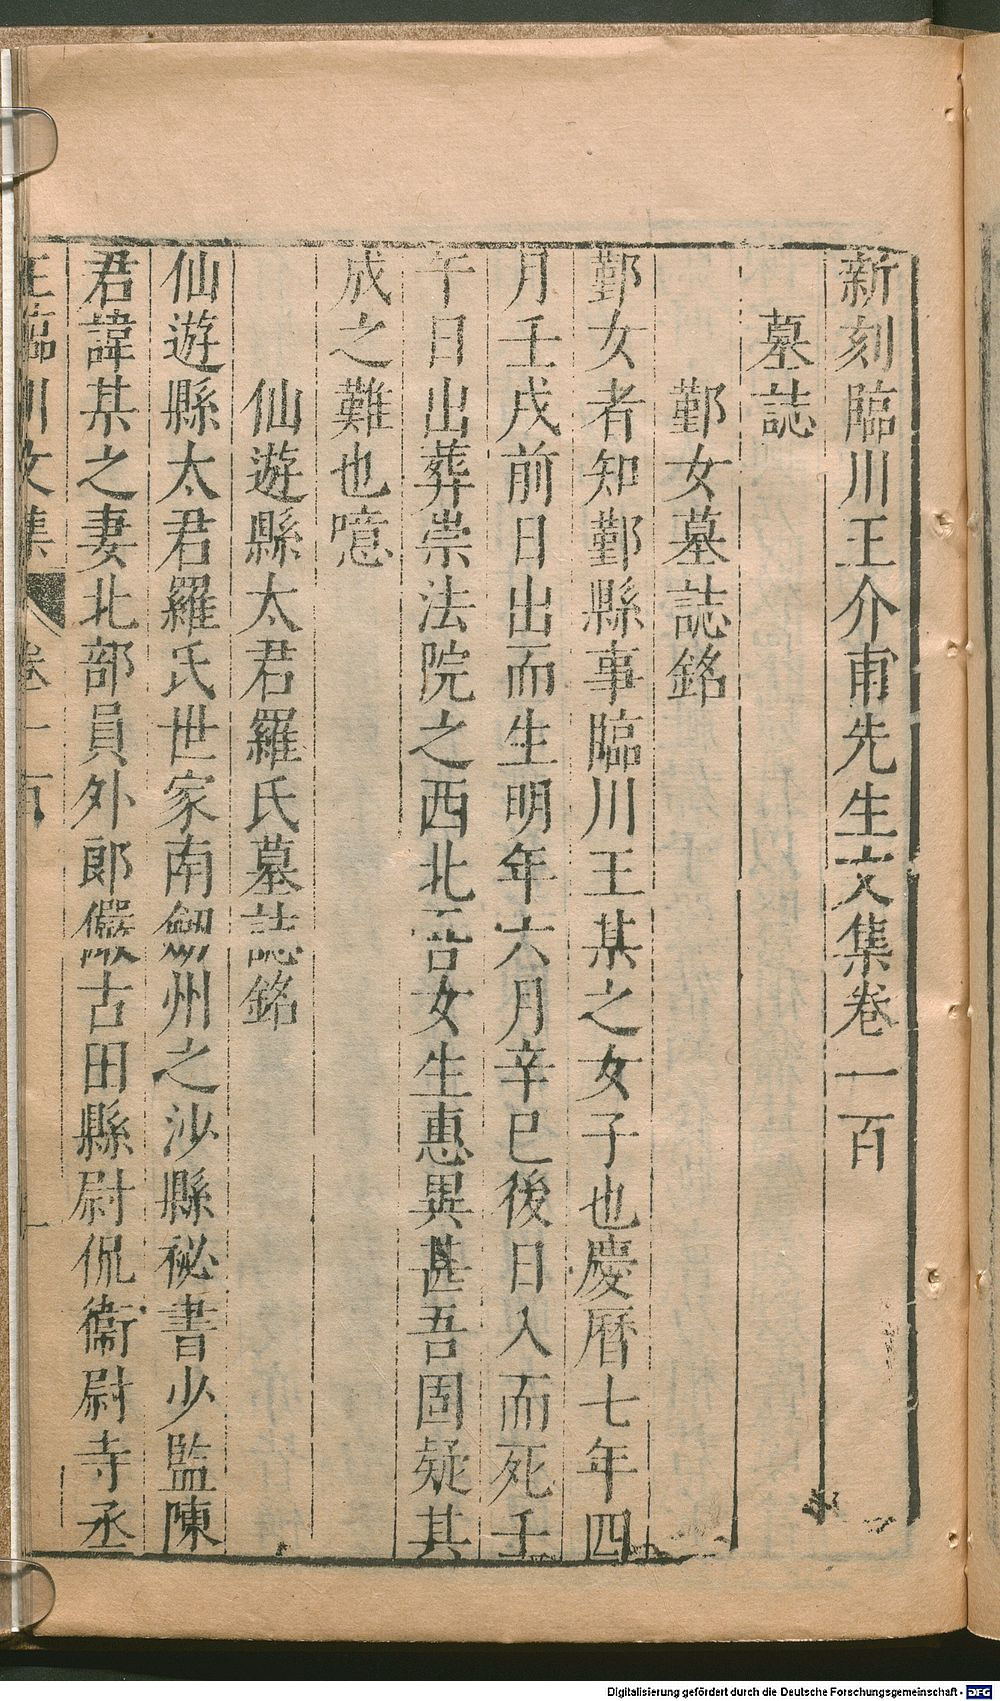 新刻臨川王介甫先生文集卷一百
墓誌
鄞女墓誌銘
鄞女者知鄞縣事臨川王某之女子也慶曆七年四
月壬戌前日出而生明年六月辛巳後日入而死壬
午日出葬崇法院之西北吾女生惠異甚吾固疑其
成之難也噫
仙遊縣太君羅氏墓誌銘
仙遊縣太君羅氏世家南劒州之沙縣祕書少監陳
君諱某之妻北部員外郎儼古田縣尉侃衞尉寺丞
王臨川文集 卷一百 一
Digitalisierung gefördert durch die Deutsche Forschungsgemeinschaft - DFG